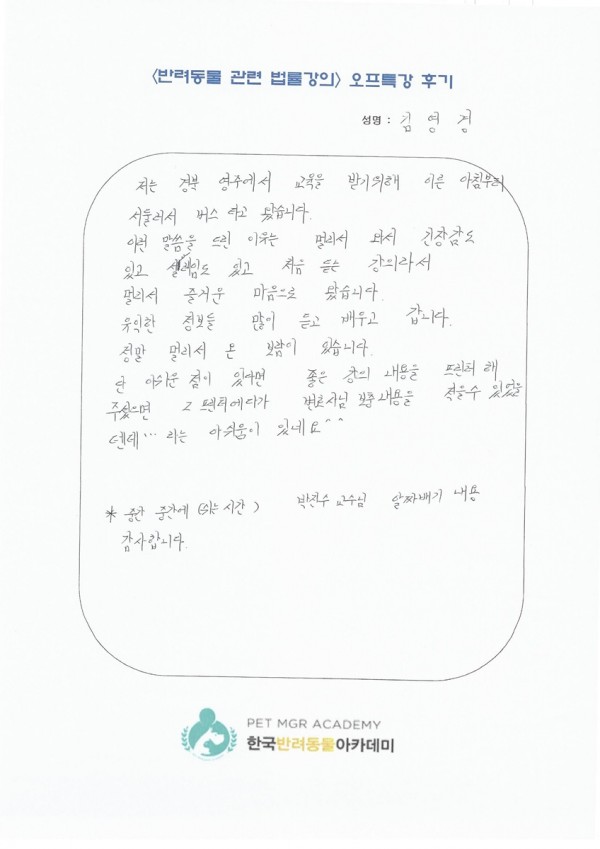 <반려동물 관련 법률강의> 오프특강 후기
성명 : 김 영 경
저는 경북 영주에서 교육을 받기위해 이른 아침부터
서둘러서 버스 타고 왔습니다.
이런 말씀을 드린 이유는 멀리서 와서 긴장감도
있고 설레임도 있고 처음 듣는 강의라서
멀리서 즐거운 마음으로 왔습니다.
유익한 정보들 많이 듣고 배우고 갑니다.
정말 멀리서 온 보람이 있습니다.
단 아쉬운 점이 있다면 좋은 강의 내용을 프린터 해
주셨으면 그 프린터에다가 변호사님 내용을 적을수 있었을
텐데... 라는 아쉬움이 있네요^^
* 중간 중간에 (쉬는 시간) 박진수 교수님 알짜배기 내용
감사합니다.
PET MGR ACADEMY
한국반려동물아카데미